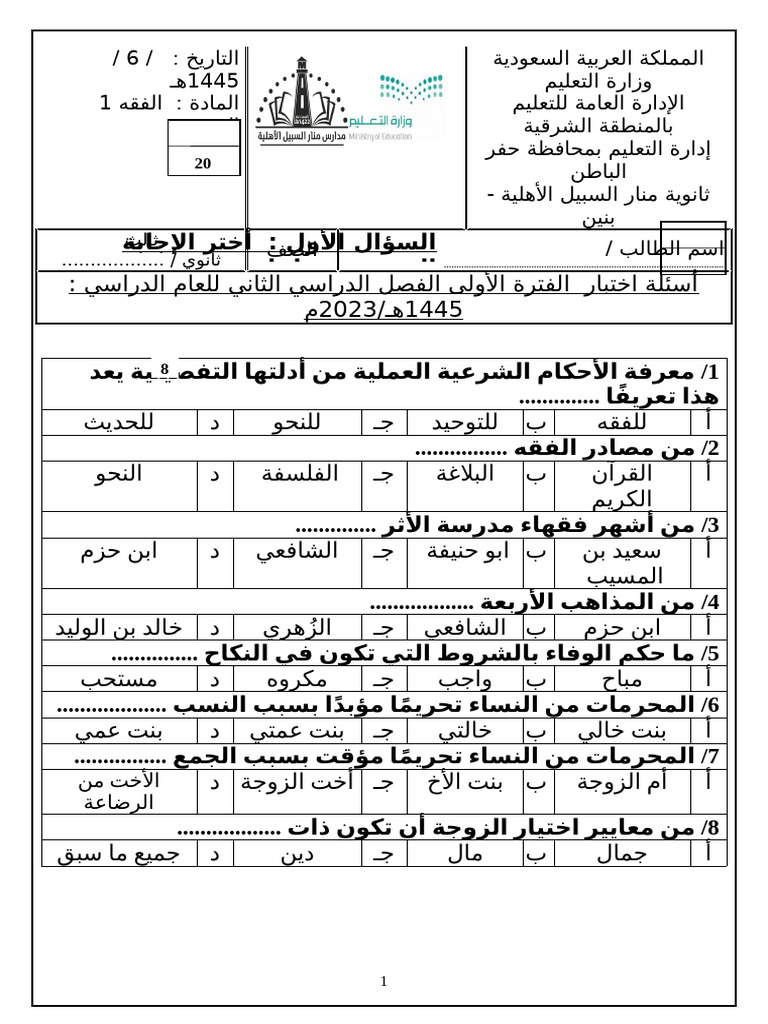 المملكة العربية السعودية
وزارة التعليم
الإدارة العامة للتعليم
بالمنطقة الشرقية
إدارة التعليم بمحافظة حفر
الباطن
ثانوية منار السبيل الأهلية -
بنين
مدارس منار السبيل الأهلية
وزارة التعليم
Ministry of Education
التاريخ :   / 6 /
1445هـ
المادة : الفقه 1
20
اسم الطالب /
الصف
ثالث
ثانوي / ..................
السؤال الأول : أختر الإجابة
أسئلة اختبار الفترة الأولى الفصل الدراسي الثاني للعام الدراسي :
1445هـ/2023م
8
1/ معرفة الأحكام الشرعية العملية من أدلتها التفصيلية يعد
هذا تعريفًا ..............
أ للفقه ب للتوحيد جـ للنحو د للحديث
2/ من مصادر الفقه ................
أ القرآن الكريم ب البلاغة جـ الفلسفة د النحو
3/ من أشهر فقهاء مدرسة الأثر ..............
أ سعيد بن المسيب ب ابو حنيفة جـ الشافعي د ابن حزم
4/ من المذاهب الأربعة ..................
أ ابن حزم ب الشافعي جـ الزُهري د خالد بن الوليد
5/ ما حكم الوفاء بالشروط التي تكون في النكاح ...............
أ مباح ب واجب جـ مكروه د مستحب
6/ المحرمات من النساء تحريمًا مؤبدًا بسبب النسب ...................
أ بنت خالي ب خالتي جـ بنت عمتي د بنت عمي
7/ المحرمات من النساء تحريمًا مؤقت بسبب الجمع ................
أ أم الزوجة ب بنت الأخ جـ أخت الزوجة د الأخت من الرضاعة
8/ من معايير اختيار الزوجة أن تكون ذات ..................
أ جمال ب مال جـ دين د جميع ما سبق
1